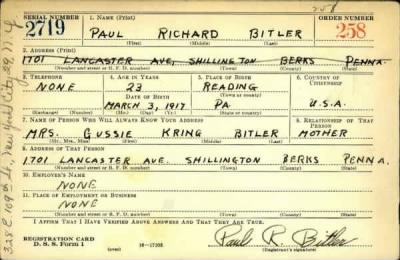 258
SERIAL NUMBER 1. NAME (Print) ORDER NUMBER
2719 PAUL RICHARD BITLER 258
(First) (Middle) (Last)
2. ADDRESS (Print)
1701 LANCASTER AVE, SHILLINGTON BERKS PENNA.
(Number and street or R. F. D. number) (Town) (County) (State)
3. TELEPHONE 4. AGE IN YEARS 5. PLACE OF BIRTH 6. COUNTRY OF CITIZENSHIP
NONE 23 READING
DATE OF BIRTH (Town or county)
MARCH 3, 1917 PA U.S.A.
(Exchange) (Number) (Mo.) (Day) (Yr.) (State or country)
7. NAME OF PERSON WHO WILL ALWAYS KNOW YOUR ADDRESS 8. RELATIONSHIP OF THAT PERSON
MRS. GUSSIE KRING BITLER MOTHER
(Mr., Mrs., Miss) (First) (Middle) (Last)
9. ADDRESS OF THAT PERSON
1701 LANCASTER AVE. SHILLINGTON BERKS PENNA.
(Number and street or R. F. D. number) (Town) (County) (State)
10. EMPLOYER'S NAME
NONE
11. PLACE OF EMPLOYMENT OR BUSINESS
NONE
(Number and street or R. F. D. number) (Town) (County) (State)
I AFFIRM THAT I HAVE VERIFIED ABOVE ANSWERS AND THAT THEY ARE TRUE.
REGISTRATION CARD
D. S. S. Form 1 16-17105 Paul R. Bitler
(Registrant's signature)
328 E. 109th St. New York City 29, N.Y.